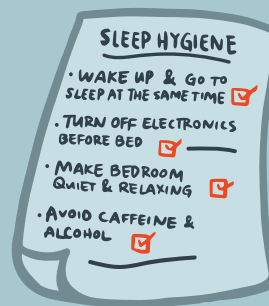 SLEEP HYGIENE
• WAKE UP & GO TO
SLEEP AT THE SAME TIME
• TURN OFF ELECTRONICS
BEFORE BED
• MAKE BEDROOM
QUIET & RELAXING
• AVOID CAFFEINE &
ALCOHOL